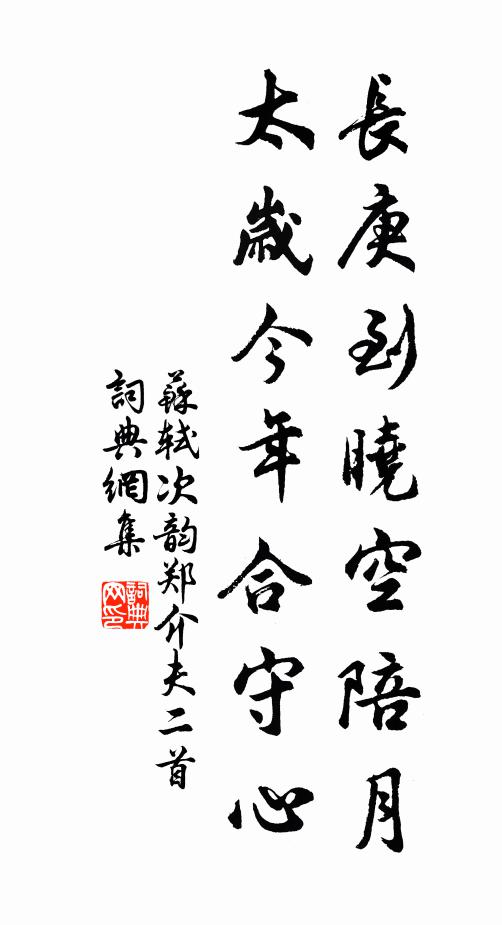 長庚到曉空陪月
太歲今年合守心
蘇軾次韵郑介夫二首
詞典網集
詞典网印